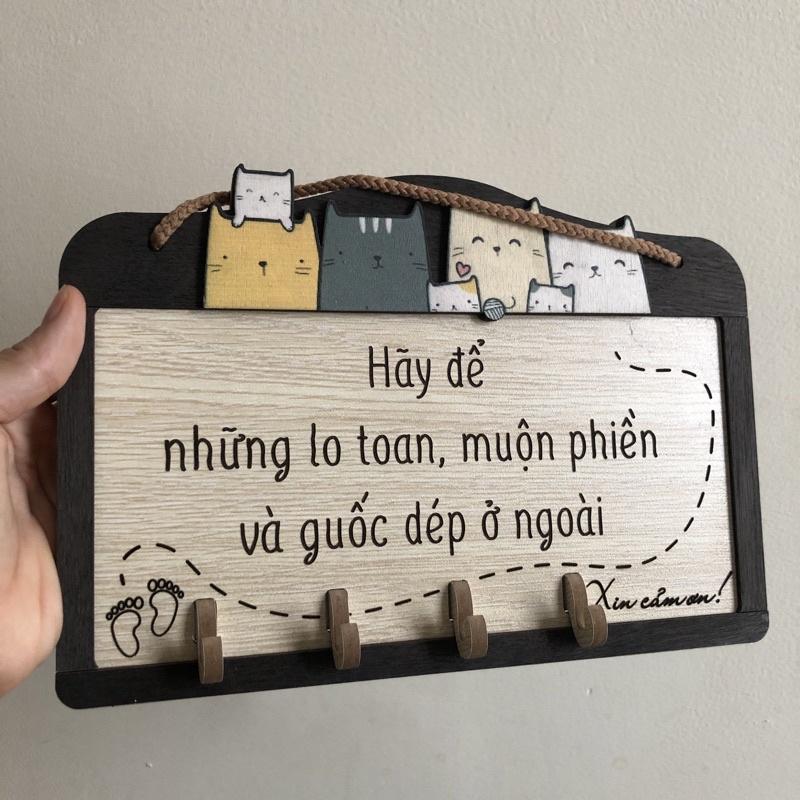 Hãy để
những lo toan, muộn phiền
và guốc dép ở ngoài
Xin cảm ơn!